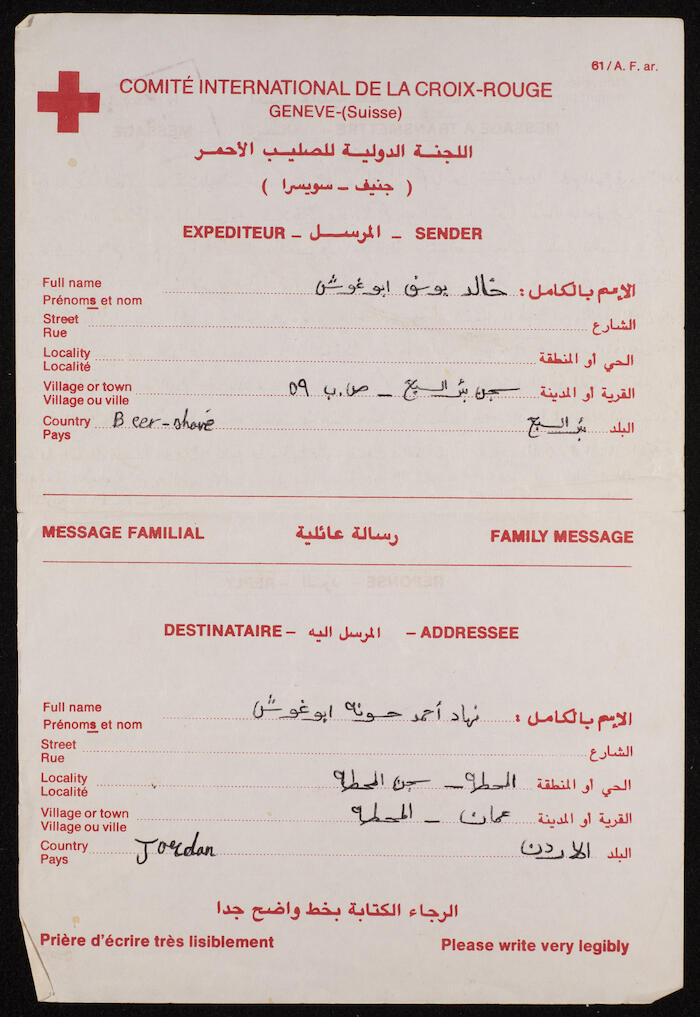 61 / A. F. ar.
COMITÉ INTERNATIONAL DE LA CROIX-ROUGE
GENEVE-(Suisse)
اللجنة الدولية للصليب الأحمر
( جنيف ـ سويسرا )
EXPEDITEUR – المرسل – SENDER
Full name الإسم بالكامل : خالد يوسف ابوغوش
Prénoms et nom
Street الشارع
Rue
Locality الحي أو المنطقة
Localité
Village or town القرية أو المدينة سجن بئر السبع – ص.ب ٥٩
Village ou ville
Country Beer-shave البلد بئر السبع
Pays
MESSAGE FAMILIAL رسالة عائلية FAMILY MESSAGE
DESTINATAIRE – المرسل اليه – ADDRESSEE
Full name الإسم بالكامل : نهاد أحمد ابوغوش
Prénoms et nom
Street الشارع
Rue
Locality الحي أو المنطقة المحطة – سجن المحطة
Localité
Village or town القرية أو المدينة عمان – المحطة
Village ou ville
Country Jordan البلد الاردن
Pays
الرجاء الكتابة بخط واضح جدا
Prière d'écrire très lisiblement Please write very legibly